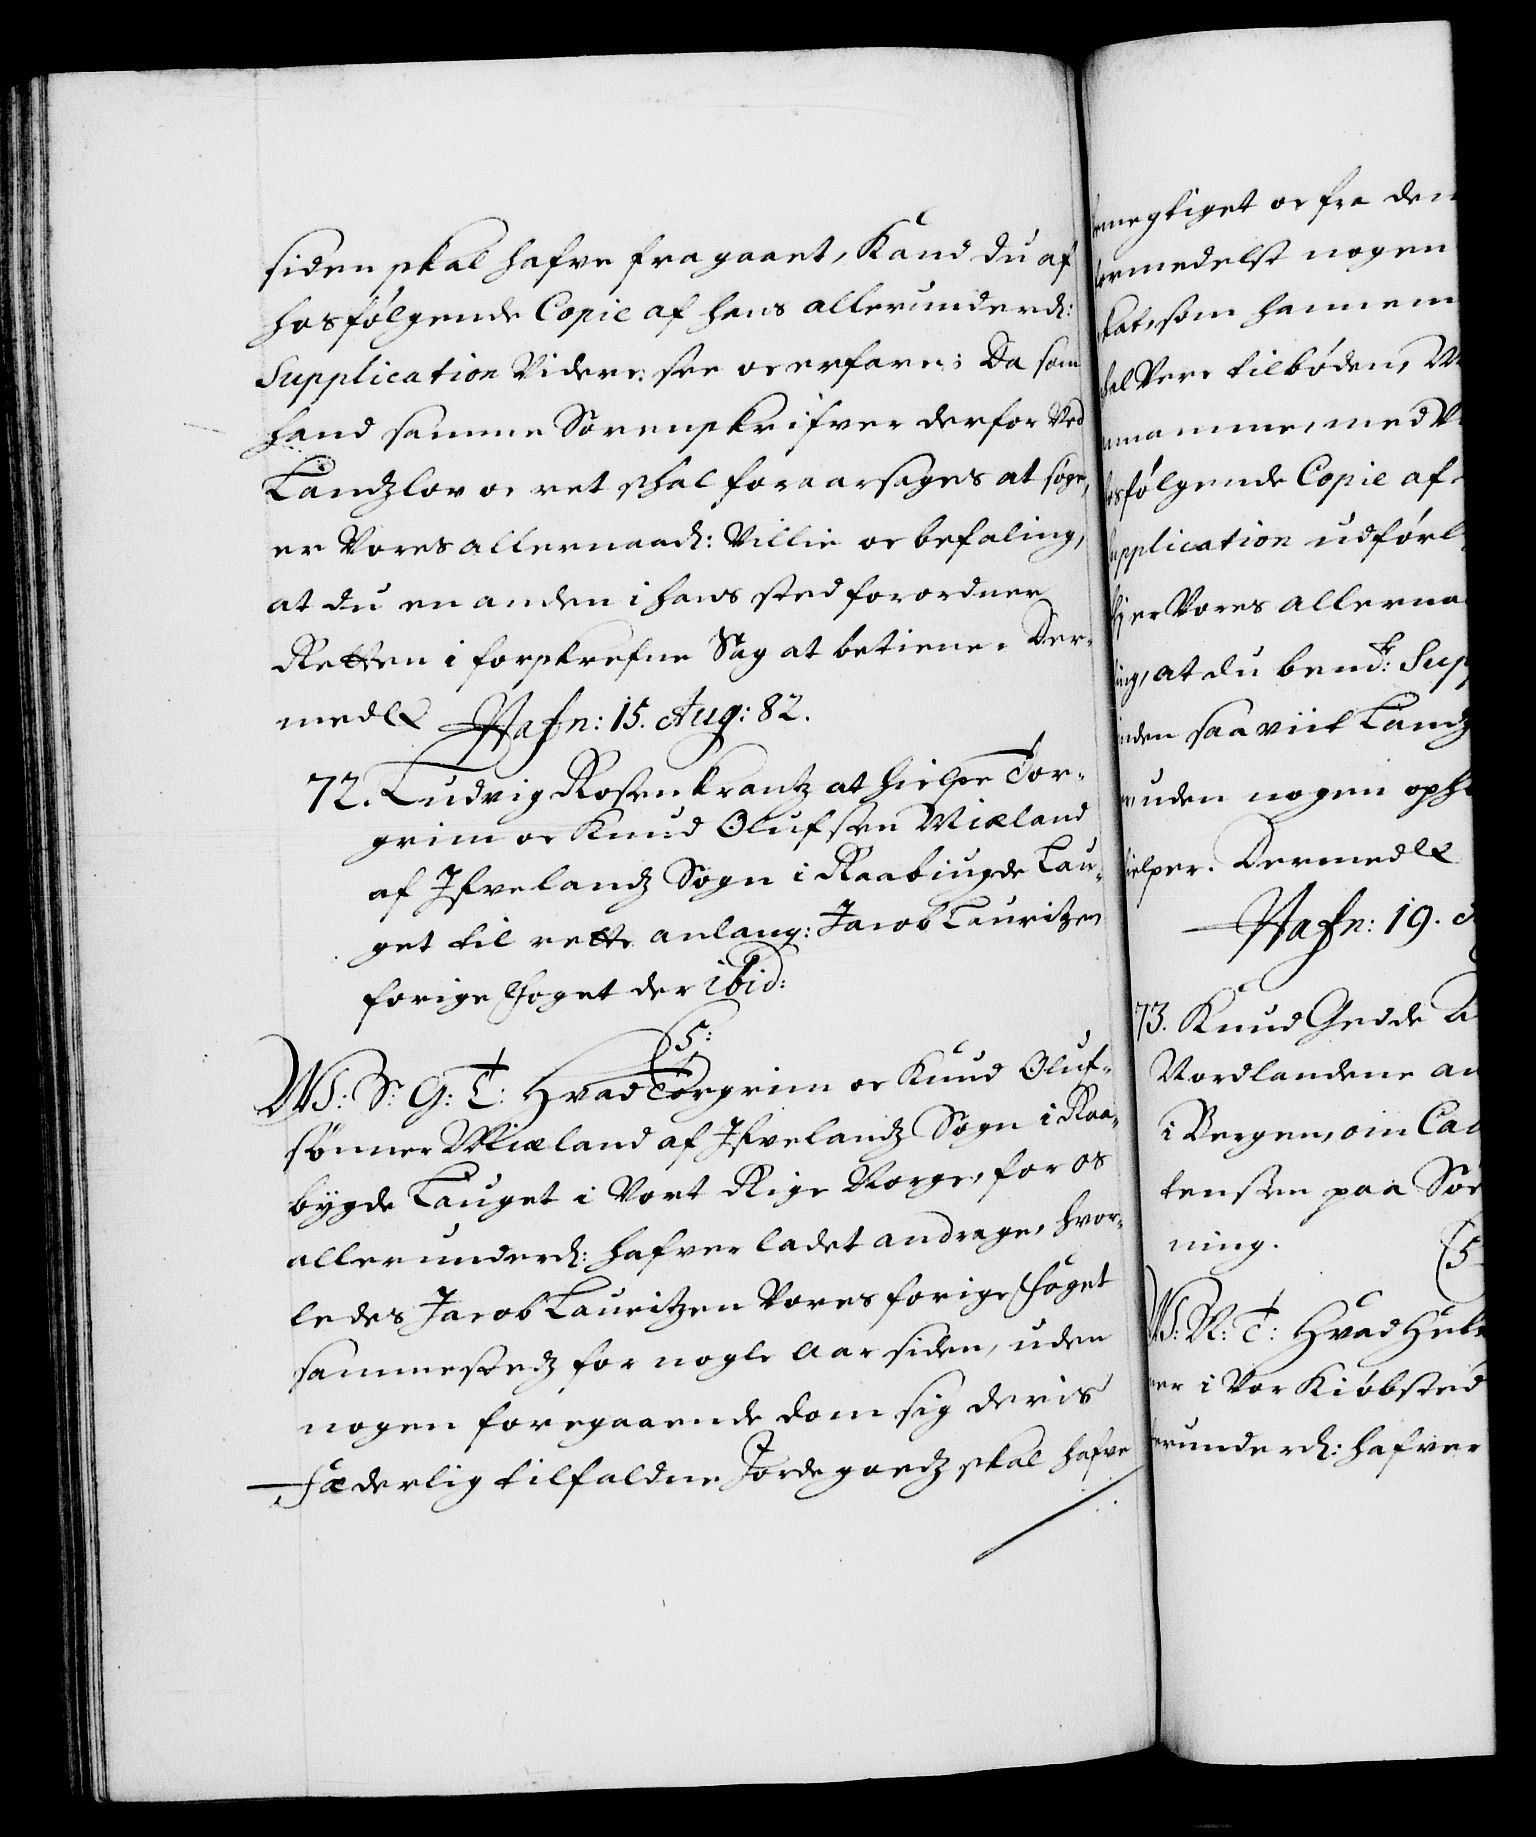 siden skal hafve fragaaet, Kand du af
hosfølgende Copie af hans allerunderd:
Supplication Videre see oc erfare; Da som
hand samme Sorenskrifver derfor Ved
Landzlov oc ret skal foraarsages at søge,
er Vores allernaad: Villie oc befaling,
at du en anden i hans sted forordner
Retten i forskrefne Sag at betiene. Der-
med
Hafn: 15. Aug: 82.
72. Ludvig Rosenkrantz at hielpe Tor-
grim oc Knud Olufsen Miæland
af Ifvelandz Sogn i Raabiugde Lau-
get til rette anlang: Jacob Lauritzen
forige foget der ibid:
C5:
W: S: G: T: Hvad Torgrim oc Knud Oluf-
sønner Miæland af Ifvelandz Sogn i Raa-
bygde Lauget i Vort Rige Norge, for os
allerunderd: hafver ladet andrage, hvor-
ledes Jacob Lauritzen Vores forige foget
sammestedz for nogle Aar siden, uden
nogen foregaaende dom sig deris
Fæderlig tilfaldne Jordegoedz skal hafve
megtiget oc fra dem
formedelst nogen
skat, som hannem
skal Vere tilbøden,
annamme, med
hosfølgende Copie af
Supplication udførl
er Vores allerna
ing, at du bemt: Sup
inden saa viit Landz
uden nogen oph
hielper. Dermed
Hafn: 19.
73. Knud Gedde
Nordlandene an
i Bergen, om
tensen paa
ning.
C5
W: N: T: Hvad
er i Vor Kiøbsted
erunderd: hafver